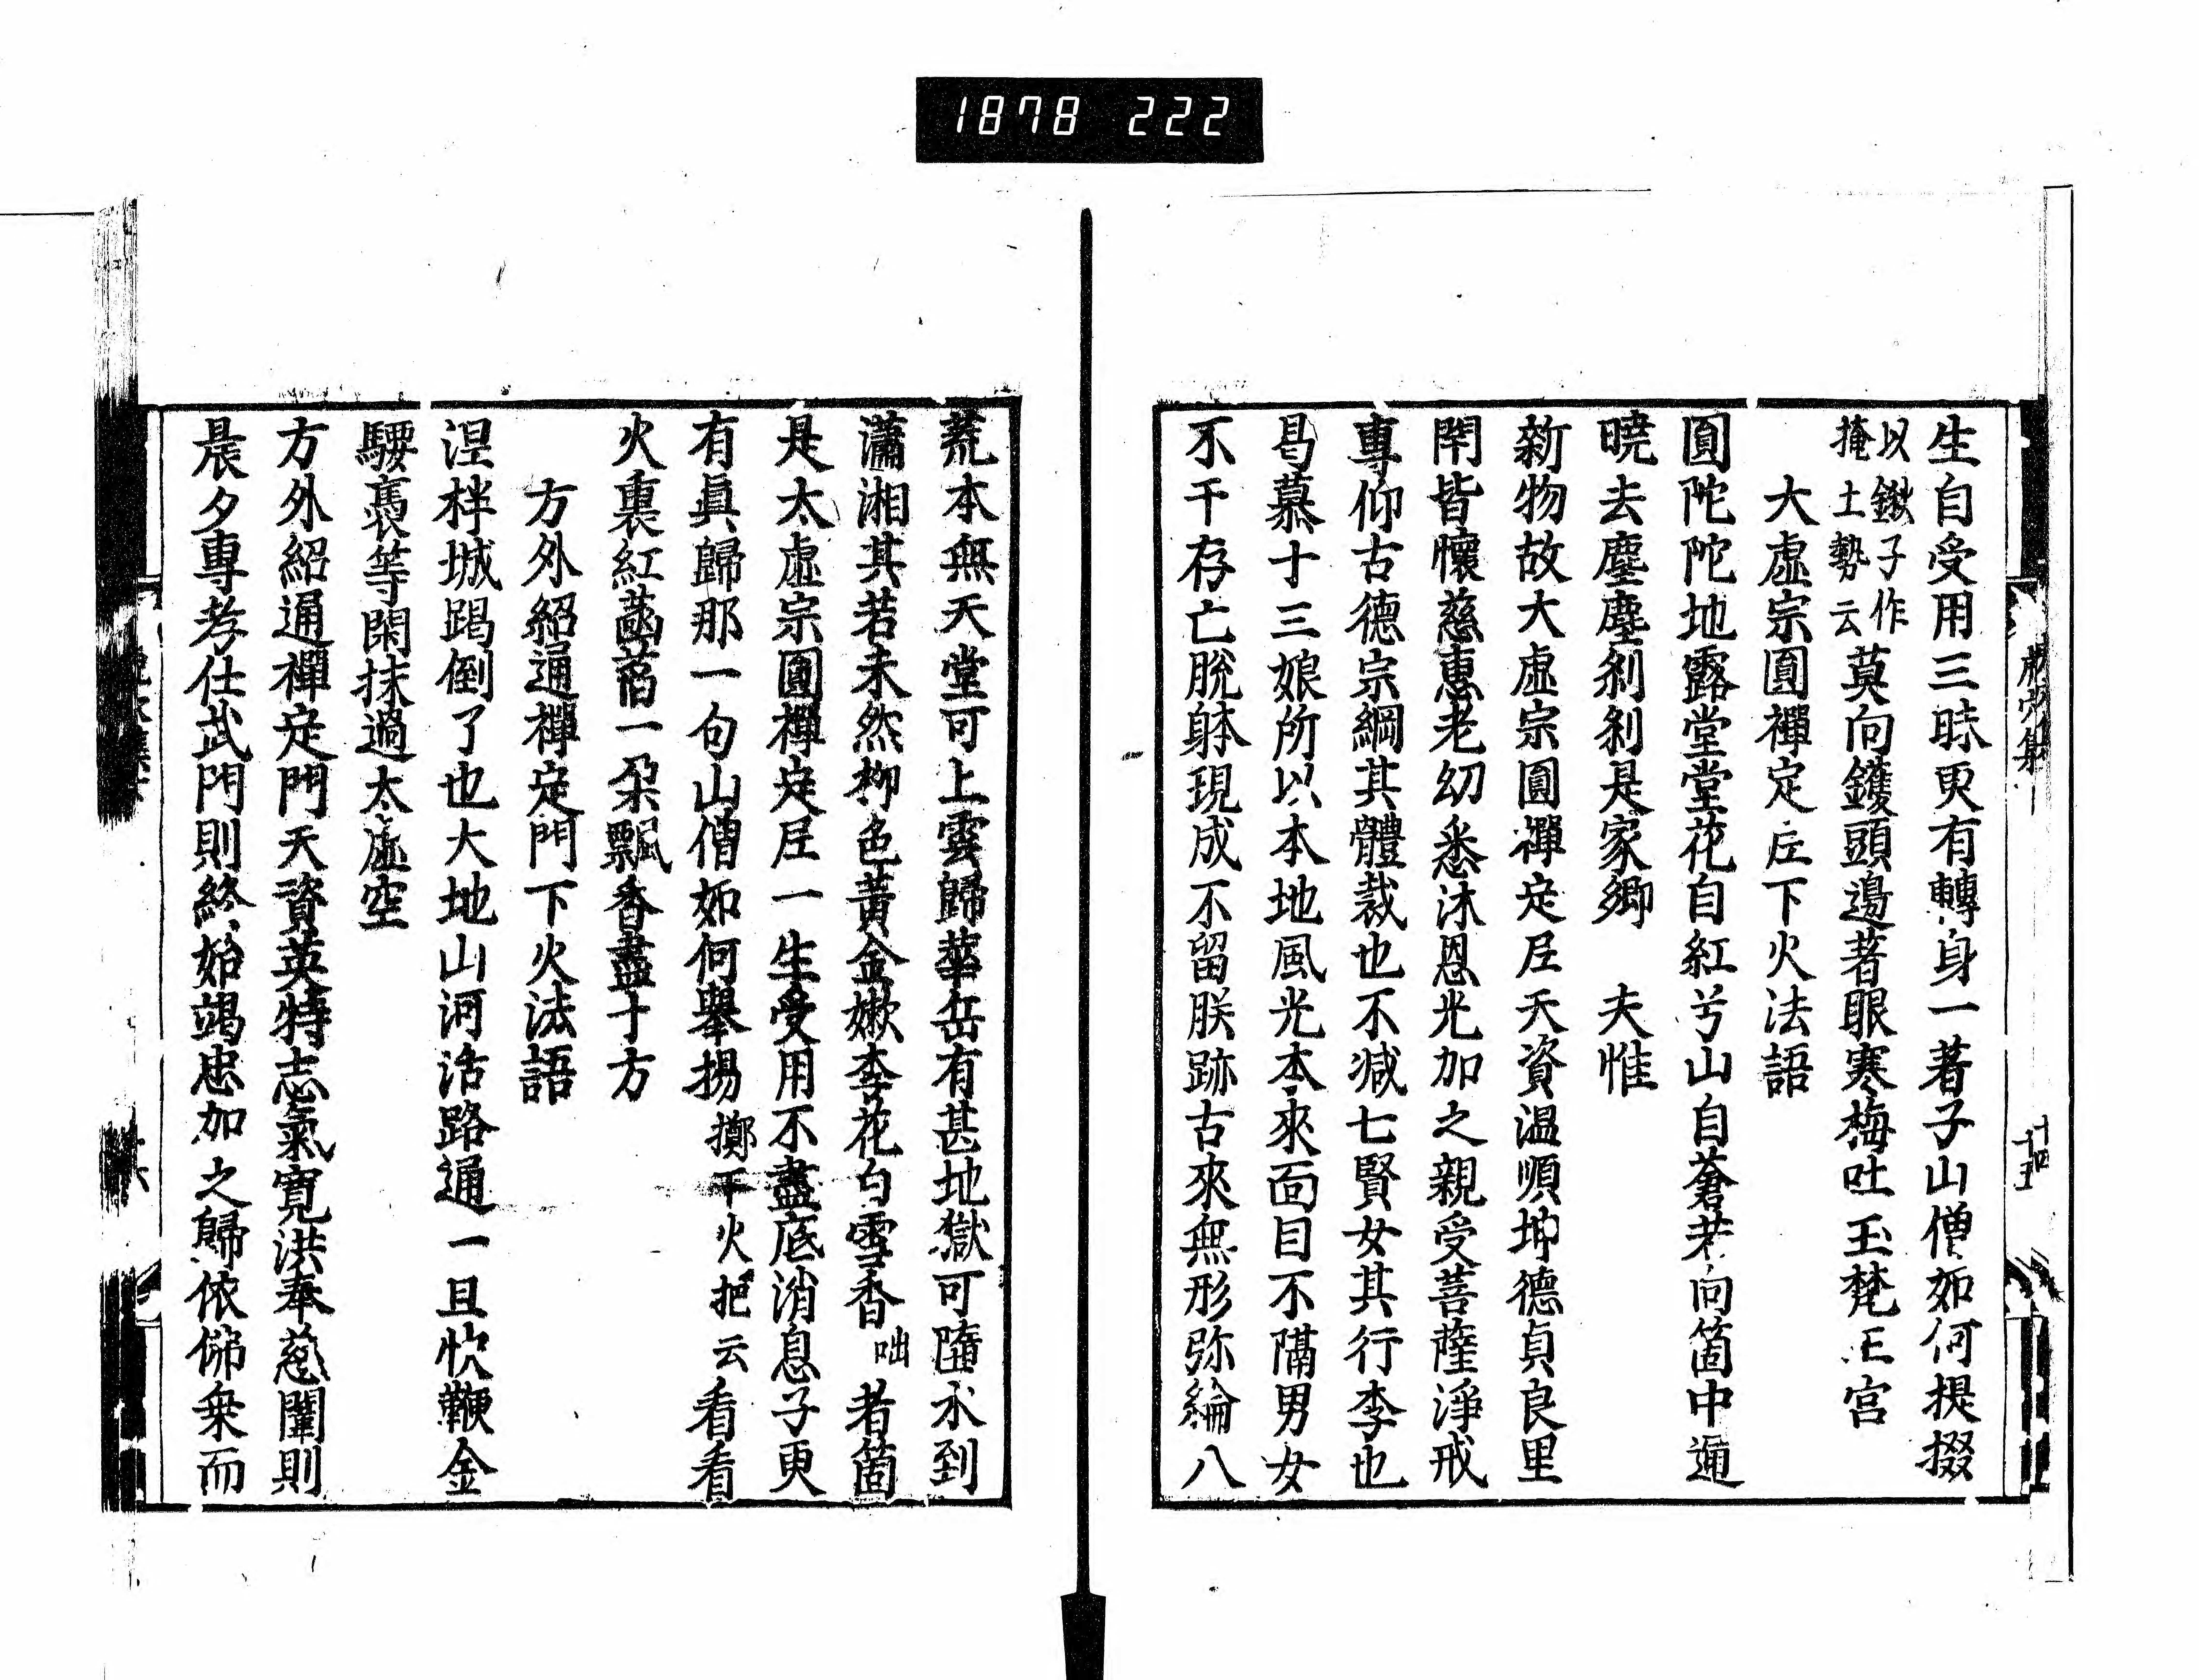 1878 222
生自受用三時更有轉身一著子山僧如何提掇
以鍬子作
掩土勢云
莫向钁頭邊著眼寒梅吐玉梵王宮
大虛宗圓禪定尼下火法語
圓陀陀地露堂堂花自紅兮山自蒼若向箇中通
曉去塵塵刹刹是家鄉　夫惟
新物故大虛宗圓禪定尼天資温順坤德貞良里
閈皆懷慈惠老幼悉沐恩光加之親受菩薩淨戒
專仰古德宗綱其體裁也不減七賢女其行李也
曷慕十三娘所以本地風光本來面目不隔男女
不干存亡脫躰現成不留朕跡古來無形弥綸八
荒本無天堂可上雲歸華岳有甚地獄可墮水到
瀟湘其若未然柳色黃金嫩李花白雪香
咄
者箇
是太虛宗圓禪定尼一生受用不盡底消息子更
有眞歸那一句山僧如何舉揚
擲下火把云
看看
火裏紅菡萏一朶飄香盡十方
方外紹通禪定門下火法語
涅柈城踢倒了也大地山河活路通一旦快鞭金
騕褭等閑抹過太虛空
方外紹通禪定門天資英特志氣寬洪奉慈闈則
晨夕專孝仕武門則終始竭忠加之歸依佛乗而